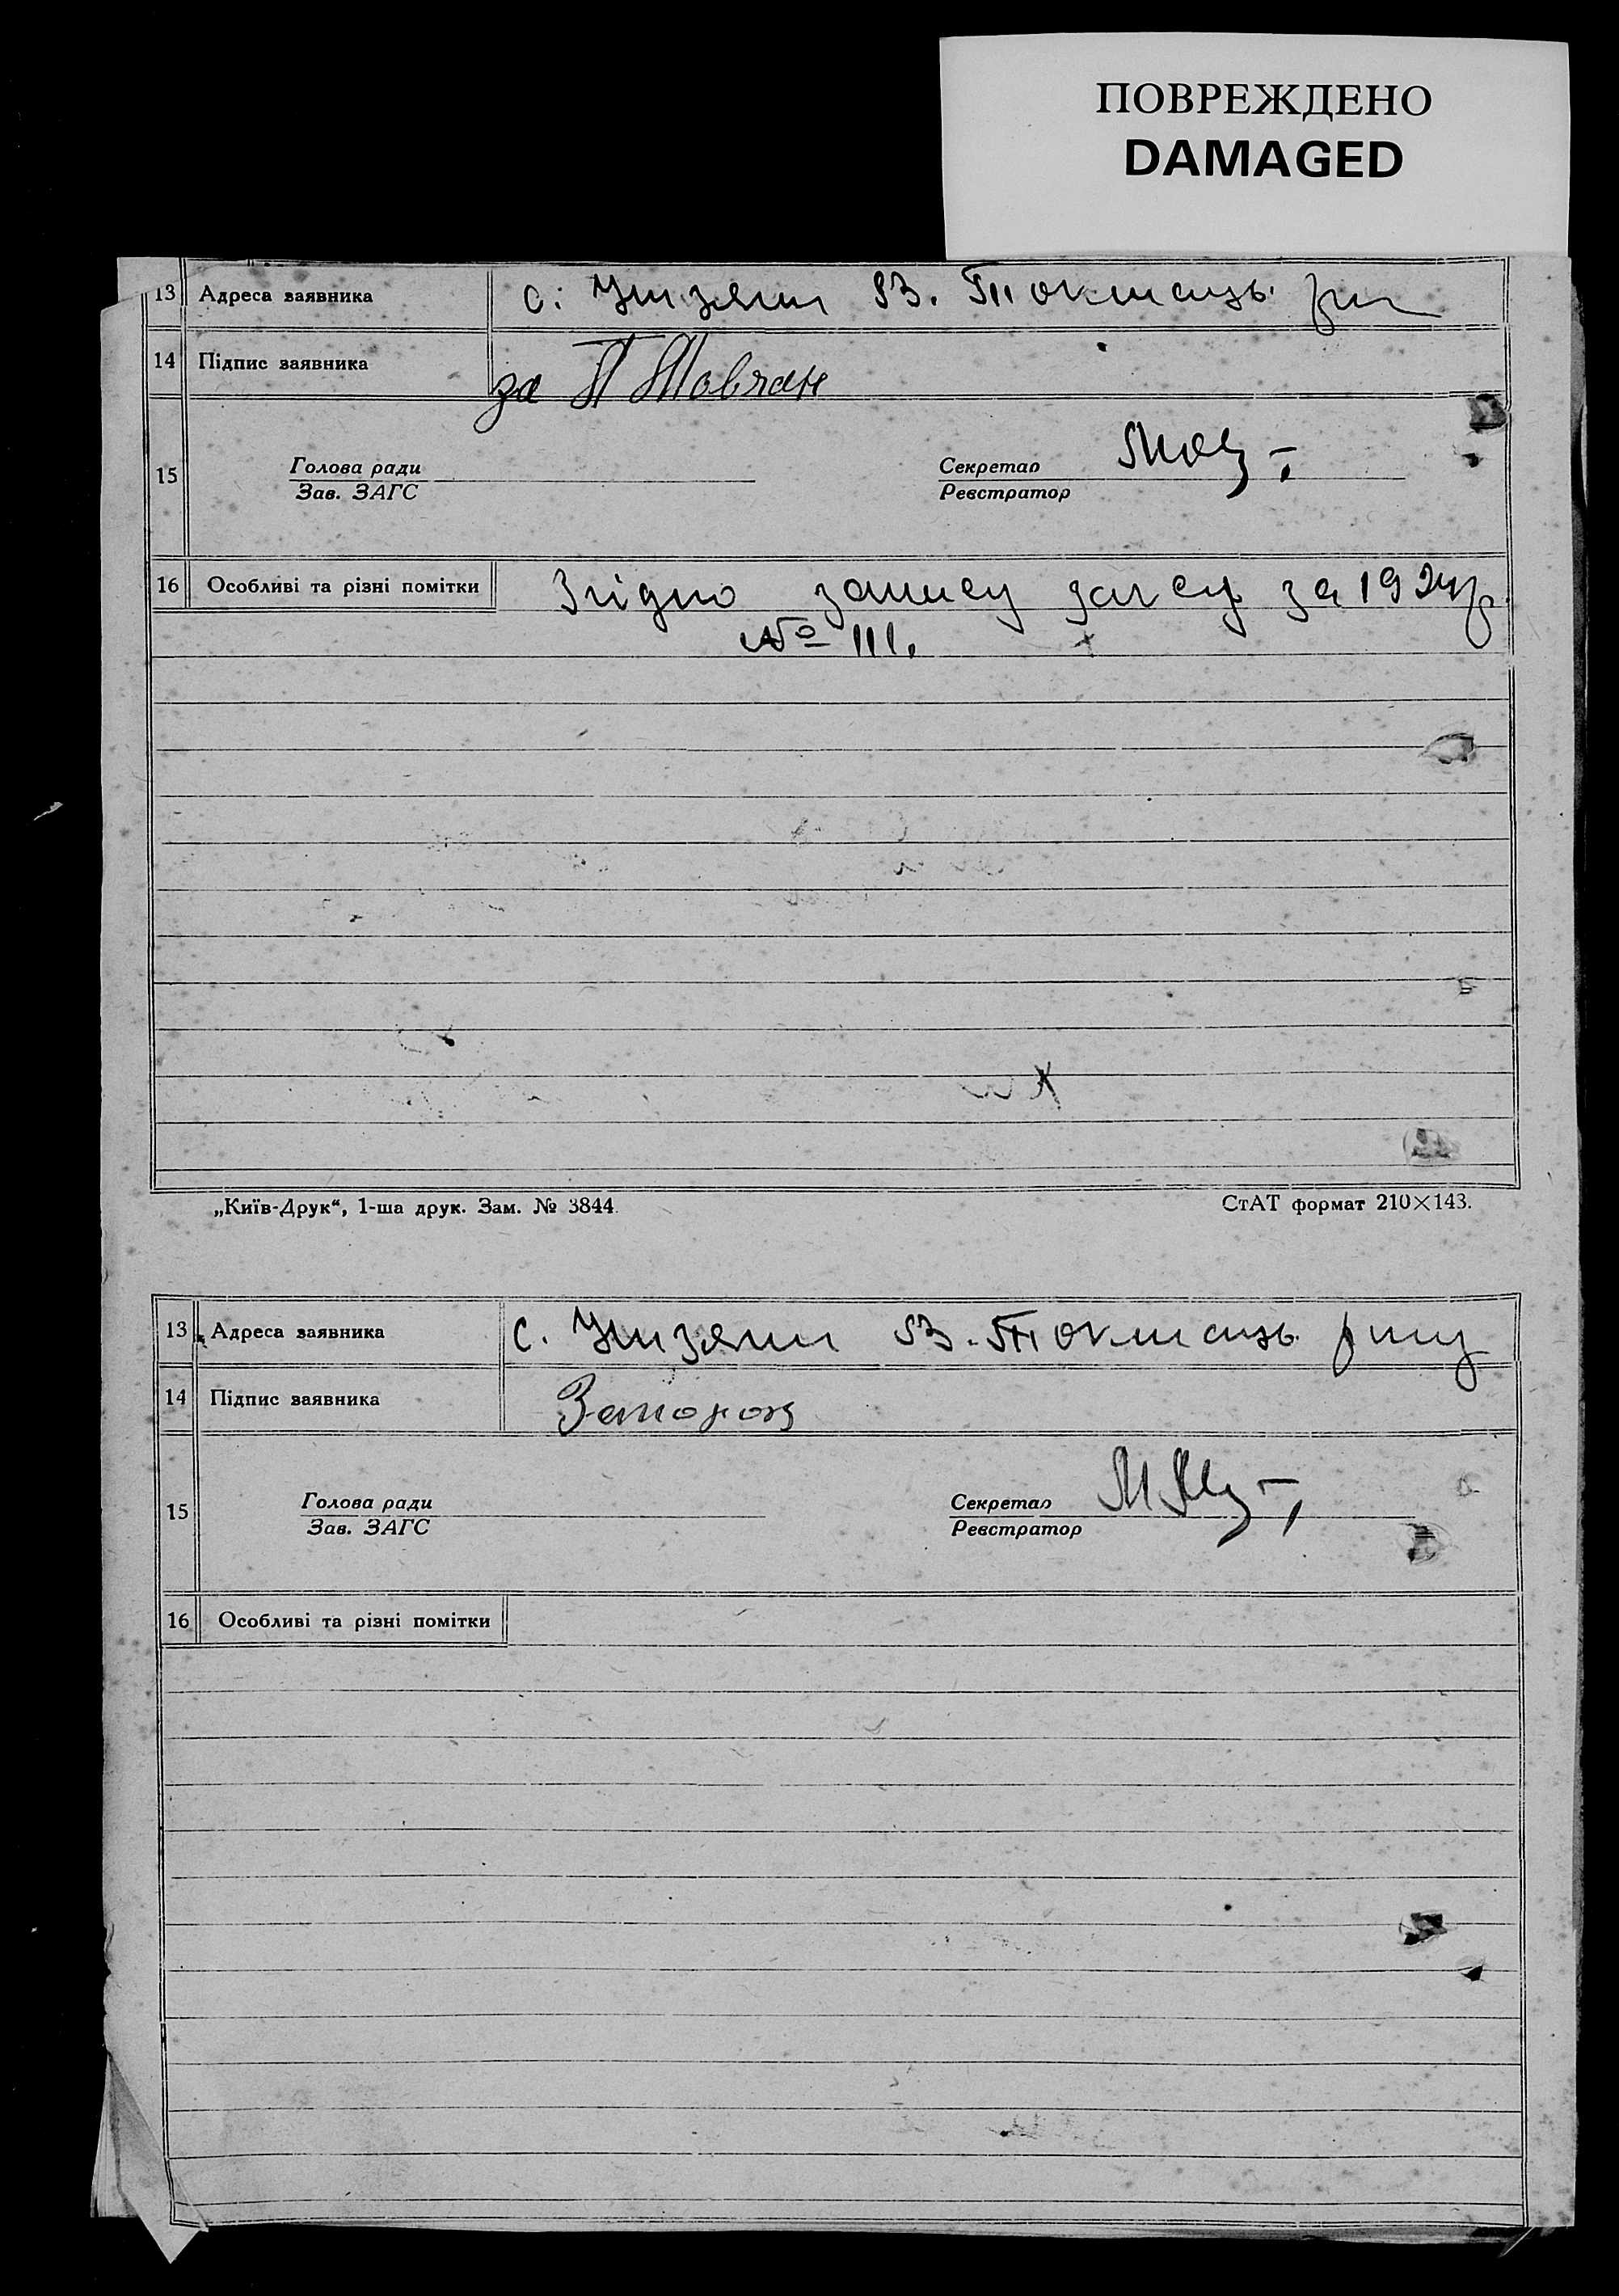 ПОВРЕЖДЕНО
DAMAGED
13 Адреса заявника с. В. Токмацьк.
14 Підпис заявника за П Товчан
15 Голова ради Секретар
Зав. ЗАГС Реєстратор
16 Особливі та різні помітки Згідно запису загсу за 1924 р.
№ 111.
„Київ-Друк“, 1-ша друк. Зам. № 3844. СтАТ формат 210×143.
13 Адреса заявника с. В. Токмацьк. р-ну
14 Підпис заявника
15 Голова ради Секретар
Зав. ЗАГС Реєстратор
16 Особливі та різні помітки